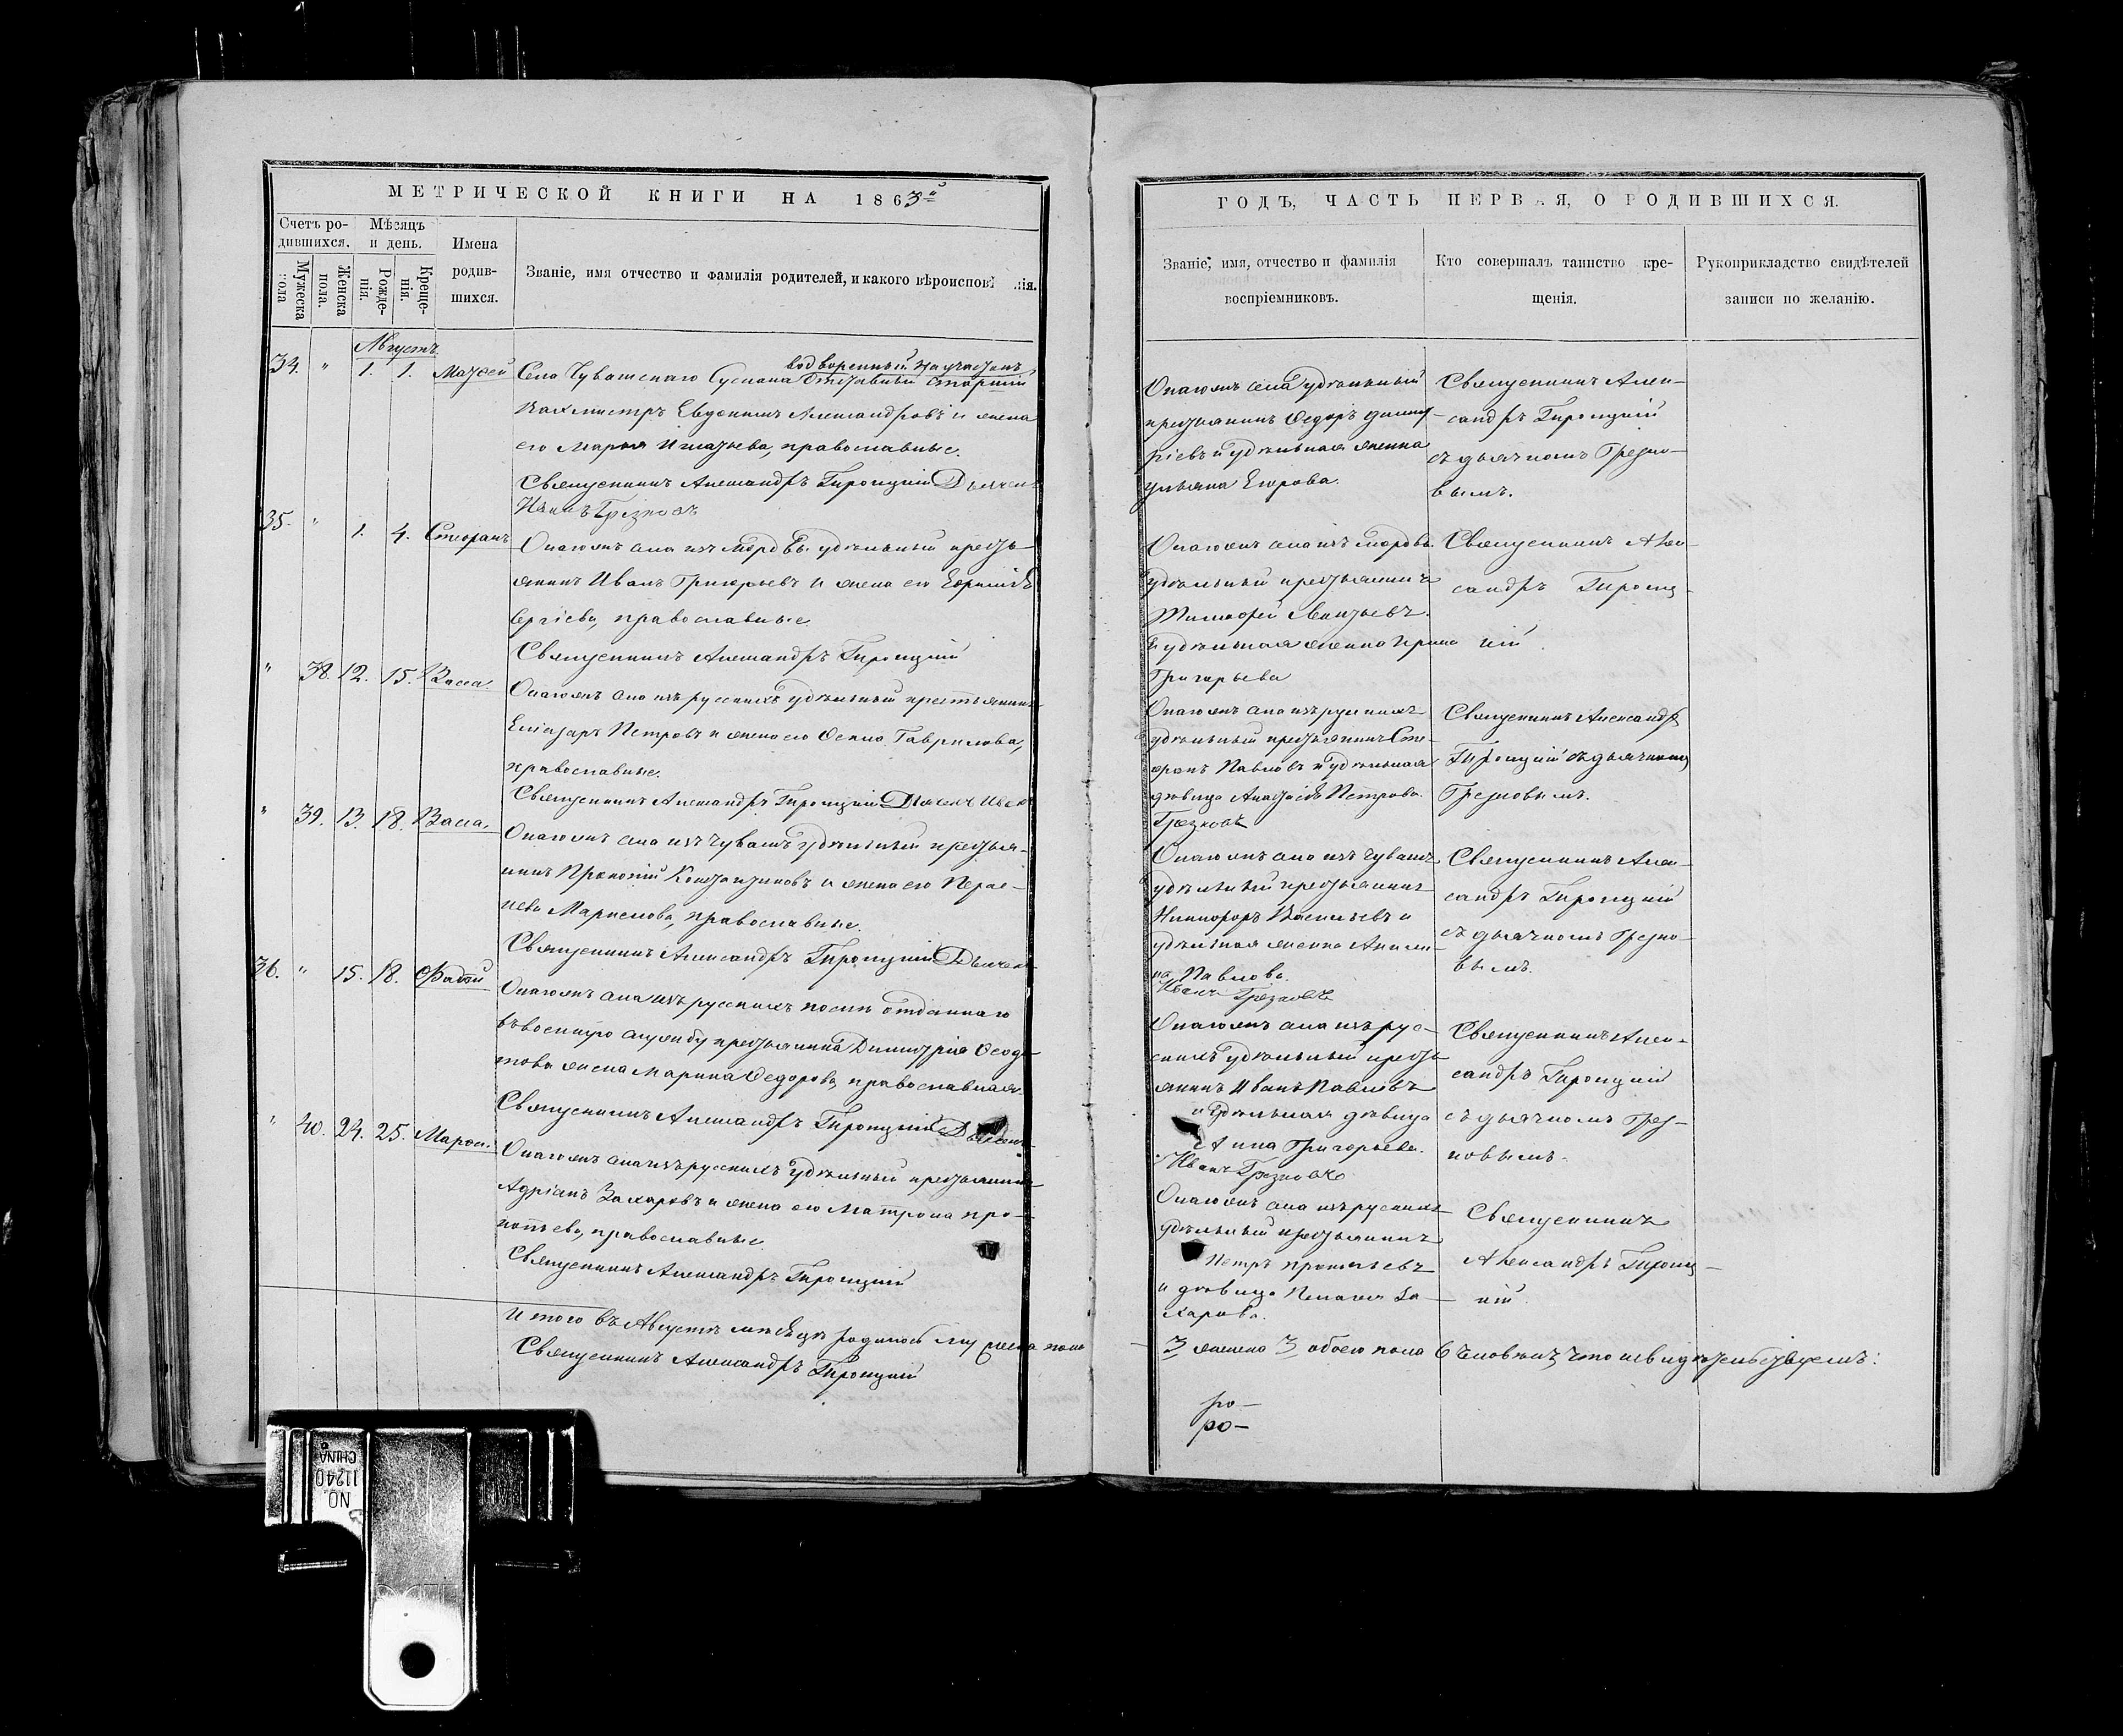 МЕТРИЧЕСКОЙ КНИГИ НА 1863й
Счетъ ро-
дившихся.
Мѣсяцъ
и день.
Мужеска
пола
Женска
пола.
Рожде-
нія.
Креще-
нія.
Имена
родив-
шихся.
Званіе, имя отчество и фамилія родителей, и какого вѣроисповѣ нія.
Августъ
34. " 1. 1. Матѳей
водворенный на участкахъ
Села Чувашскаго отставный старшій
Вахмистръ Евдокимъ Александровъ и жена
его Марья Игнатьева, православные.
Священникъ Александръ Дьячекъ
Иванъ Грезновъ
35. " 1. 4. Стефанъ
Онагожъ села изъ мордвы удѣльный кресть-
янинъ Иванъ Григорьевъ и жена его
Сергіева, православные.
Священникъ Александръ
" 38. 12. 15. Васса.
Онагожъ села изъ русскихъ удѣльный крестьянинъ
Еліазаръ Петровъ и жена его Гаврилова,
православные.
Священникъ Александръ Дьячекъ Иванъ
" 39. 13. 18. Васса.
Онагожъ села изъ чувашъ удѣльный крестья-
нинъ Прокопій Константиновъ и жена его
православные.
Священникъ Александръ Дьячекъ
36. " 15. 18. Фатій
Онагожъ села изъ русскихъ послѣ отданнаго
въ военную службу крестьянина Димитрія Ѳедо-
това жена Марина Ѳедорова, православная.
Священникъ Александръ Дьячекъ
" 40. 24. 25.
Онагожъ села изъ русскихъ удѣльный крестьянинъ
Адріанъ Захаровъ и жена его Матрона Про-
копьева, православные.
Священникъ Александръ
Итого въ Августѣ мѣсяцѣ родилось мужеска пола
Священникъ Александръ
ГОДЪ, ЧАСТЬ ПЕРВАЯ, О РОДИВШИХСЯ.
Званіе, имя, отчество и фамилія
воспріемниковъ.
Кто совершалъ таинство кре-
щенія.
Рукоприкладство свидѣтелей
записи по желанію.
Онагожъ села удѣльный
крестьянинъ Ѳедоръ Димит-
ріевъ и удѣльная женка
Ульяна Егорова.
Священникъ Алек-
сандръ
съ дьячкомъ Грезно-
вымъ.
Онагожъ села изъ мордвы
удѣльный крестьянинъ
Тимофей
и удѣльная женка Ирина
Григорьева
Священникъ Алек-
сандръ
кій.
Онагожъ села изъ русскихъ
удѣльный крестьянинъ Сте-
фанъ Павловъ и удѣльная
дѣвица Анастасія Петрова.
Грезновъ
Священникъ Александръ
съ дьячкомъ
Грезновымъ.
Онагожъ села изъ чувашъ
удѣльный крестьянинъ
Никифоръ Васильевъ и
удѣльная женка Акили-
на Павлова.
Иванъ Грезновъ
Священникъ Алек-
сандръ
съ дьячкомъ Грезно-
вымъ.
Онагожъ села изъ рус-
скихъ удѣльный кресть-
янинъ Иванъ Павловъ
и удѣльная дѣвица
Анна Григорьева.
Иванъ Грезновъ
Священникъ Алек-
сандръ
съ дьячкомъ Грез-
новымъ.
Онагожъ села изъ русскихъ
удѣльный крестьянинъ
Петръ Прокопьевъ
и дѣвица Пелагія За-
харова.
Священникъ
Александръ
кій.
3 женска 3 обоего пола 6 человѣкъ, что и свидѣтельствуемъ:
ро-
ро-
NO.
11240
CHINA